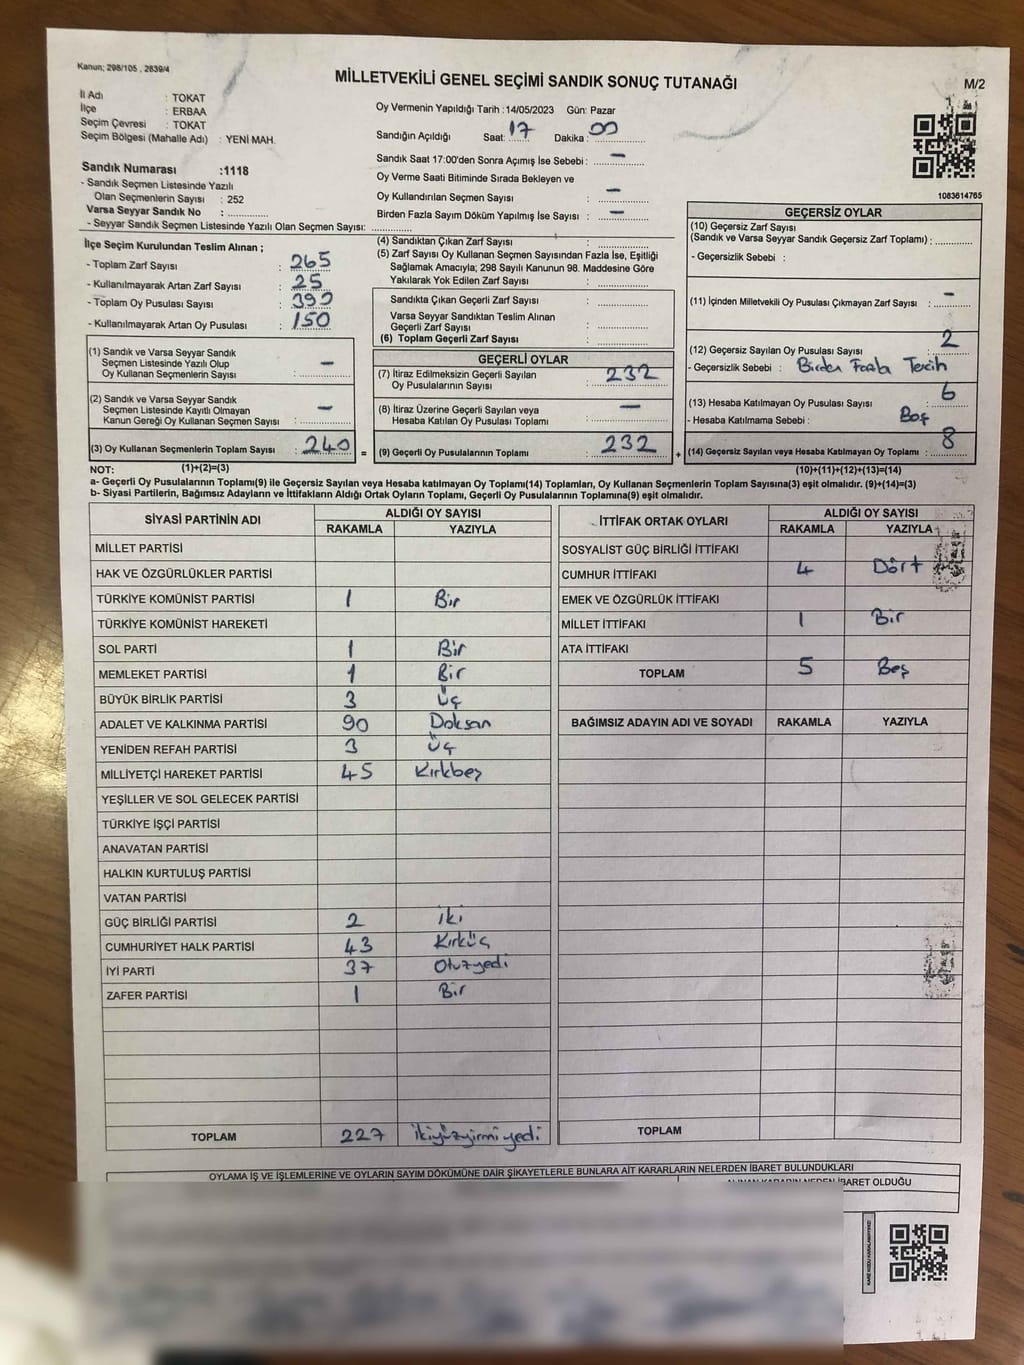 Kanun; 298/105 , 2839/4
MİLLETVEKİLİ GENEL SEÇİMİ SANDIK SONUÇ TUTANAĞI
M/2
İl Adı : TOKAT
İlçe : ERBAA
Seçim Çevresi : TOKAT
Seçim Bölgesi (Mahalle Adı) : YENİ MAH.
Sandık Numarası :1118
- Sandık Seçmen Listesinde Yazılı
Olan Seçmenlerin Sayısı : 252
Varsa Seyyar Sandık No :
- Seyyar Sandık Seçmen Listesinde Yazılı Olan Seçmen Sayısı:
Oy Vermenin Yapıldığı Tarih : 14/05/2023 Gün: Pazar
Sandığın Açıldığı Saat: 17 Dakika : 00
Sandık Saat 17:00'den Sonra Açımış İse Sebebi : —
Oy Verme Saati Bitiminde Sırada Bekleyen ve
Oy Kullandırılan Seçmen Sayısı : —
Birden Fazla Sayım Döküm Yapılmış İse Sayısı : —
1083614765
İlçe Seçim Kurulundan Teslim Alınan ;
- Toplam Zarf Sayısı : 265
- Kullanılmayarak Artan Zarf Sayısı : 25
- Toplam Oy Pusulası Sayısı : 390
- Kullanılmayarak Artan Oy Pusulası : 150
(1) Sandık ve Varsa Seyyar Sandık
Seçmen Listesinde Yazılı Olup
Oy Kullanan Seçmenlerin Sayısı : —
(2) Sandık ve Varsa Seyyar Sandık
Seçmen Listesinde Kayıtlı Olmayan
Kanun Gereği Oy Kullanan Seçmen Sayısı : —
(3) Oy Kullanan Seçmenlerin Toplam Sayısı : 240 =
(4) Sandıktan Çıkan Zarf Sayısı :
(5) Zarf Sayısı Oy Kullanan Seçmen Sayısından Fazla İse, Eşitliği
Sağlamak Amacıyla; 298 Sayılı Kanunun 98. Maddesine Göre
Yakılarak Yok Edilen Zarf Sayısı :
Sandıkta Çıkan Geçerli Zarf Sayısı :
Varsa Seyyar Sandıktan Teslim Alınan
Geçerli Zarf Sayısı :
(6) Toplam Geçerli Zarf Sayısı :
GEÇERLİ OYLAR
(7) İtiraz Edilmeksizin Geçerli Sayılan
Oy Pusulalarının Sayısı : 232
(8) İtiraz Üzerine Geçerli Sayılan veya
Hesaba Katılan Oy Pusulası Toplamı : —
(9) Geçerli Oy Pusulalarının Toplamı : 232 +
GEÇERSİZ OYLAR
(10) Geçersiz Zarf Sayısı
(Sandık ve Varsa Seyyar Sandık Geçersiz Zarf Toplamı) :
- Geçersizlik Sebebi :
(11) İçinden Milletvekili Oy Pusulası Çıkmayan Zarf Sayısı : —
(12) Geçersiz Sayılan Oy Pusulası Sayısı : 2
- Geçersizlik Sebebi : Birden Fazla Tercih
(13) Hesaba Katılmayan Oy Pusulası Sayısı : 6
- Hesaba Katılmama Sebebi : Boş
(14) Geçersiz Sayılan veya Hesaba Katılmayan Oy Toplamı : 8
NOT: (1)+(2)=(3) (10)+(11)+(12)+(13)=(14)
a- Geçerli Oy Pusulalarının Toplamı(9) ile Geçersiz Sayılan veya Hesaba katılmayan Oy Toplamı(14) Toplamları, Oy Kullanan Seçmenlerin Toplam Sayısına(3) eşit olmalıdır. (9)+(14)=(3)
b- Siyasi Partilerin, Bağımsız Adayların ve İttifakların Aldığı Ortak Oyların Toplamı, Geçerli Oy Pusulalarının Toplamına(9) eşit olmalıdır.
SİYASİ PARTİNİN ADI ALDIĞI OY SAYISI
RAKAMLA YAZIYLA
MİLLET PARTİSİ
HAK VE ÖZGÜRLÜKLER PARTİSİ
TÜRKİYE KOMÜNİST PARTİSİ 1 Bir
TÜRKİYE KOMÜNİST HAREKETİ
SOL PARTİ 1 Bir
MEMLEKET PARTİSİ 1 Bir
BÜYÜK BİRLİK PARTİSİ 3 Üç
ADALET VE KALKINMA PARTİSİ 90 Doksan
YENİDEN REFAH PARTİSİ 3 Üç
MİLLİYETÇİ HAREKET PARTİSİ 45 Kırkbeş
YEŞİLLER VE SOL GELECEK PARTİSİ
TÜRKİYE İŞÇİ PARTİSİ
ANAVATAN PARTİSİ
HALKIN KURTULUŞ PARTİSİ
VATAN PARTİSİ
GÜÇ BİRLİĞİ PARTİSİ 2 iki
CUMHURİYET HALK PARTİSİ 43 Kırküç
İYİ PARTİ 37 Otuzyedi
ZAFER PARTİSİ 1 Bir
TOPLAM 227 ikiyüzyirmiyedi
İTTİFAK ORTAK OYLARI ALDIĞI OY SAYISI
RAKAMLA YAZIYLA
SOSYALİST GÜÇ BİRLİĞİ İTTİFAKI
CUMHUR İTTİFAKI 4 Dört
EMEK VE ÖZGÜRLÜK İTTİFAKI
MİLLET İTTİFAKI 1 Bir
ATA İTTİFAKI
TOPLAM 5 Beş
BAĞIMSIZ ADAYIN ADI VE SOYADI RAKAMLA YAZIYLA
TOPLAM
OYLAMA İŞ VE İŞLEMLERİNE VE OYLARIN SAYIM DÖKÜMÜNE DAİR ŞİKAYETLERLE BUNLARA AİT KARARLARIN NELERDEN İBARET BULUNDUKLARI
İBARET OLDUĞU